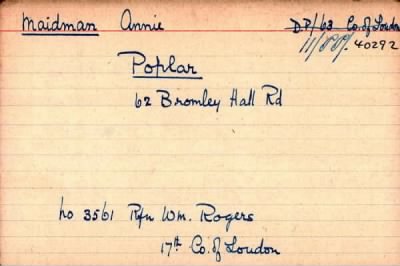 Maidman Annie DP/63 Co. of London
40292
Poplar
62 Bromley Hall Rd
No 3561 Rfn Wm. Rogers
17th Co. of London